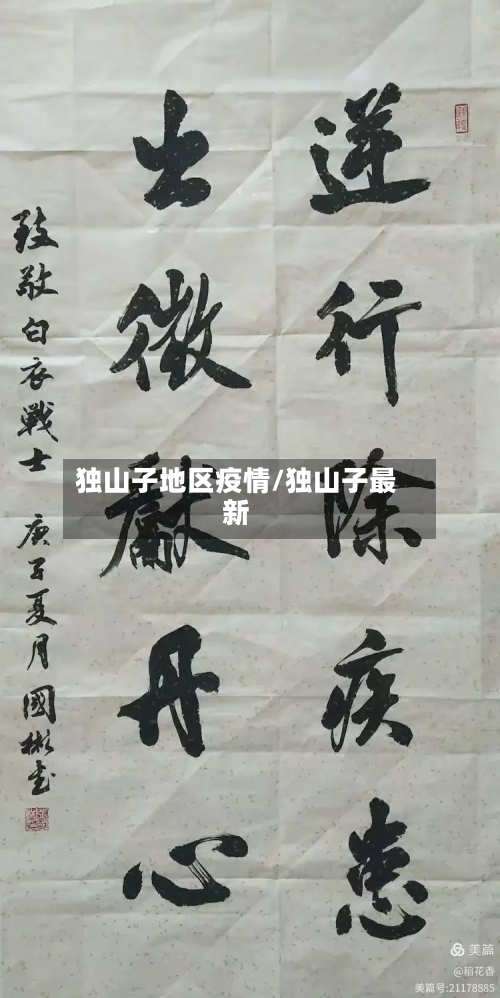 逆行除疾患
出微獻丹心
致敬白衣戰士 庚子夏月國彬书
独山子地区疫情/独山子最
新
美篇
@稻花香
美篇号:21178885